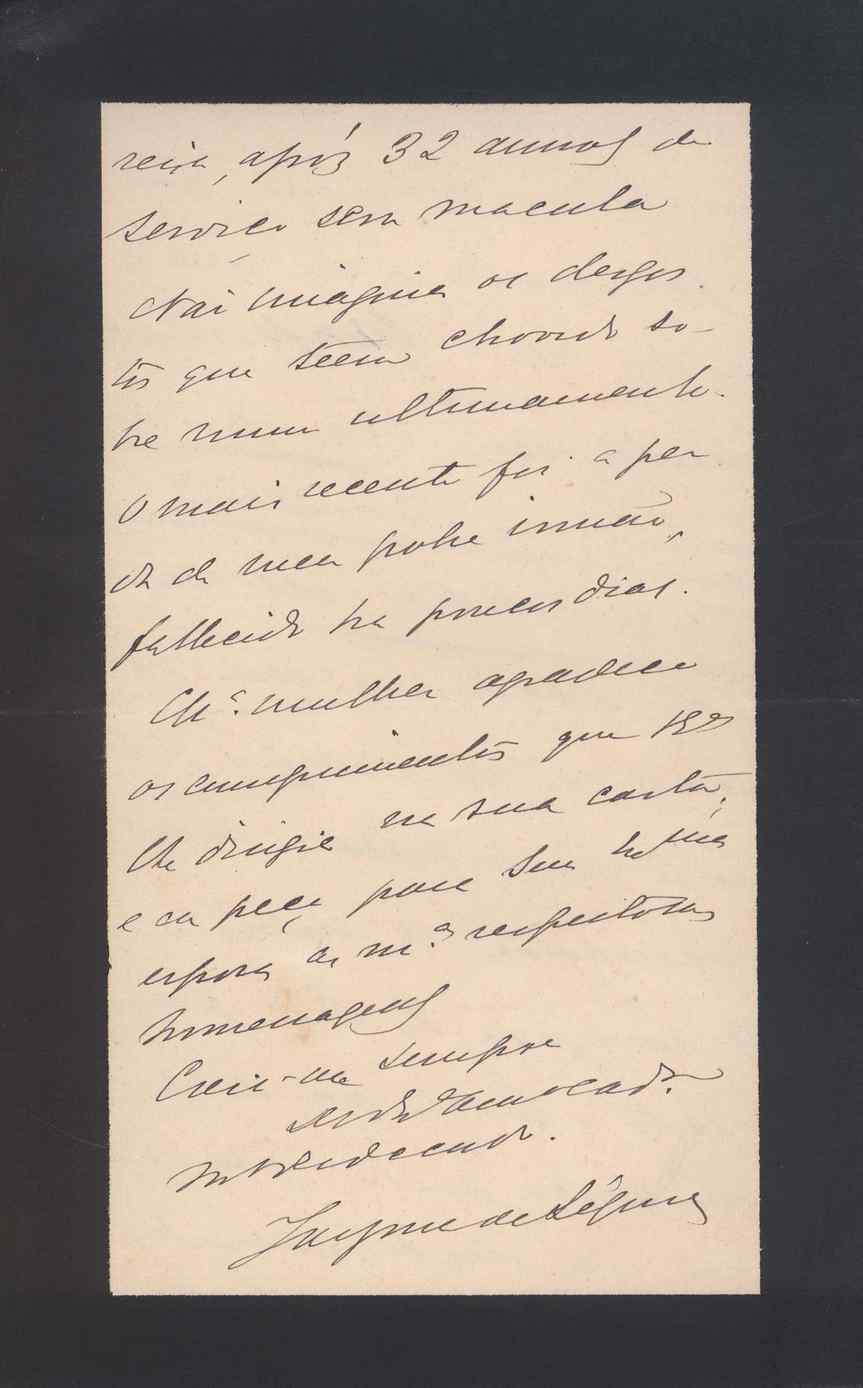 reira, após 32 annos de
serviço sem macula
Não imagina os desgos-
tos que teem chovido so-
bre mim ultimamente.
O mais recente foi a per
da de meu pobre irmão,
fallecido ha poucos dias.
M.ª mulher agradece
os cumprimentos que VEª
lhe dirigia na sua carta,
e eu peço para sua
esposa as m.as respeitosas
homenagens
Creia-me sempre
Jayme de Séguier